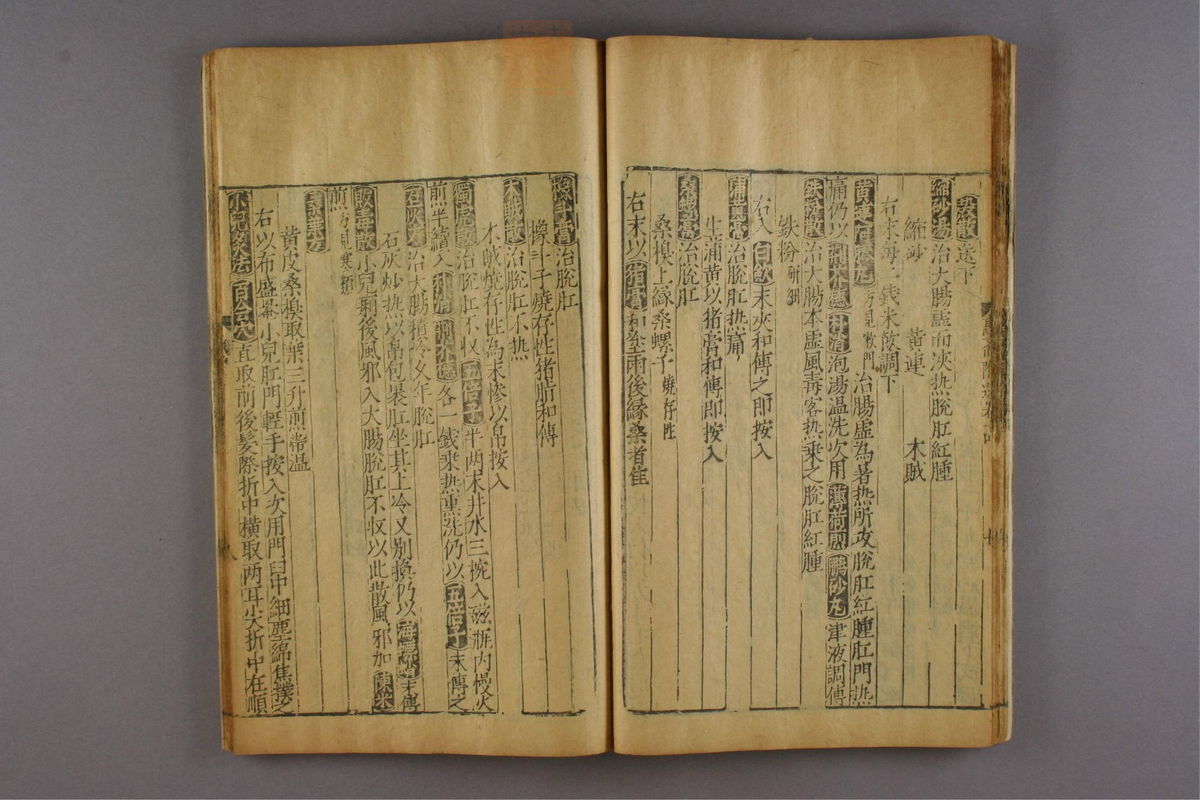 散送下
縮砂湯治大腸虛而夾热脫肛紅腫
縮砂 黃連 木賊
右末每二錢米飲調下
治腸虛為著热所攻脫肛紅腫肛門热
痛仍以朴消泡湯温洗次用薄荷煎鵬砂丸津液調傅
鉄粉散治大腸本虛風毒客热乗之脫肛紅腫
鉄粉研細
右入白蘞末夾和傅之即按入
蒲黃膏治脫肛热痛
生蒲黃以猪膏和傅即按入
治脫肛
桑槐上緣桑螺子燒存性
右末以猪膏和塗雨後緣桑者佳
橡斗膏治脫肛
橡斗子燒存性猪脂和傅
木賊散治脫肛不热
木賊燒存性為末摻以帛按入
獨虎散治脫肛不收五倍子半两末井水三椀入磁瓶内慢火
煎半續入朴消荆芥穗各一錢乗热熏洗仍以五倍子末傅之
石灰治大腸積冷久年脫肛
石灰炒热以帛包裹肛坐其上冷又别換仍以海螵蛸末傅
敗毒散小兒痢後風邪入大腸脫肛不收以此散風邪加陳米
煎方見寒類
桑葉方
黃皮桑槐取葉三升煎帶温
右以布盛盦小兒肛門輕手按入次用門臼中細塵綿焦撲之
小兒灸法百会穴直取前後髪際折中橫取两耳尖折中在頭